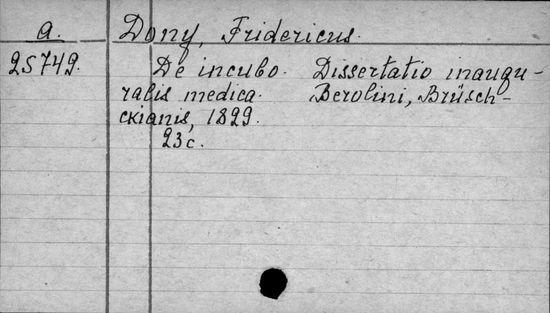 a. Dony, Fridericus.
25749. De incubo. Dissertatio inaugu-
ralis medica. Berolini, Brüsch-
ckianis, 1829.
23c.